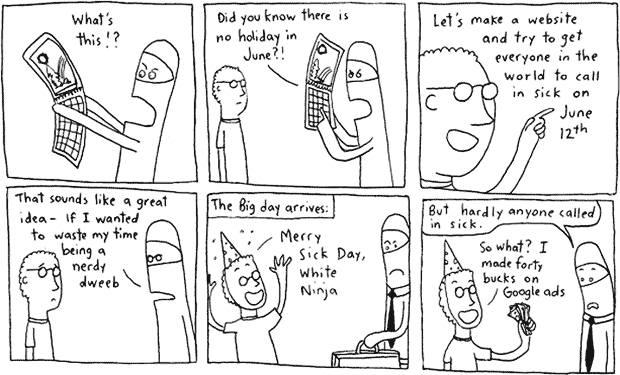 What's
this!?
Did you know there is
no holiday in
June?!
Let's make a website
and try to get
everyone in the
world to call
in sick on
June
12th
That sounds like a great
idea - If I wanted
to waste my time
being a
nerdy
dweeb
The Big day arrives:
Merry
Sick Day,
White
Ninja
But hardly anyone called
in sick.
So what? I
made forty
bucks on
Google ads